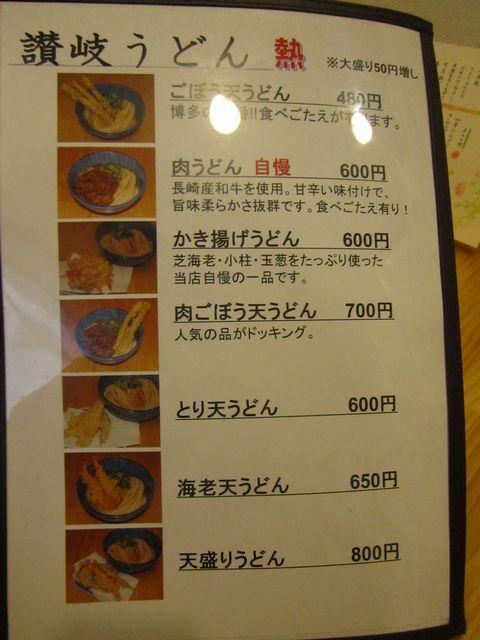 讃岐うどん 熱 ※大盛り50円増し
ごぼう天うどん 480円
博多の 番!!食べごたえが有ります。
肉うどん 自慢 600円
長崎産和牛を使用。甘辛い味付けで、
旨味柔らかさ抜群です。食べごたえ有り!
かき揚げうどん 600円
芝海老・小柱・玉葱をたっぷり使った
当店自慢の一品です。
肉ごぼう天うどん 700円
人気の品がドッキング。
とり天うどん 600円
海老天うどん 650円
天盛りうどん 800円